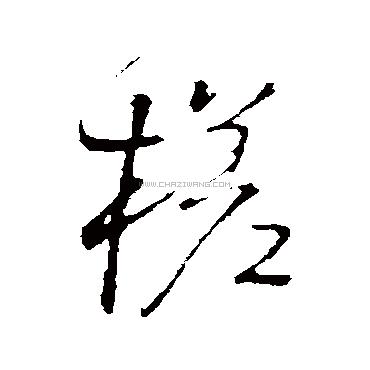 槎
WWW.CHAZIWANG.COM